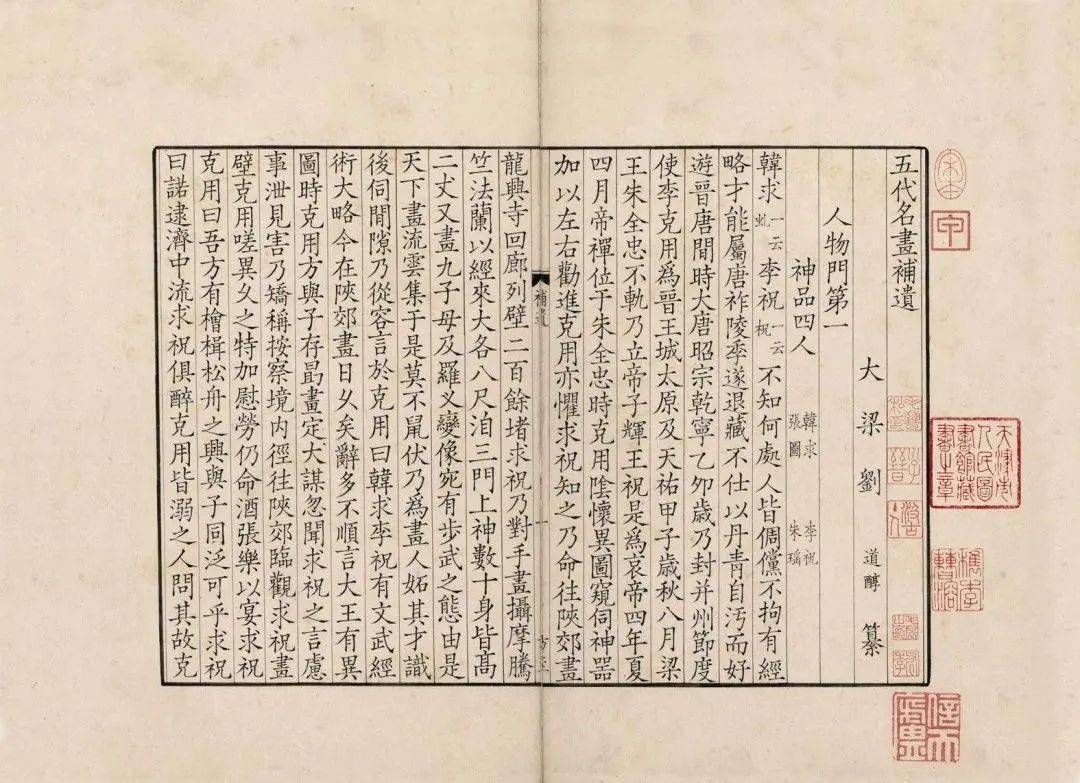 五代名畫補遺
大梁劉道醇纂
人物門第一
神品四人
韓求 李祝
張圖 朱瑤
韓求一云虬李祝一云柷不知何處人皆倜儻不拘有經
略才能屬唐祚陵季遂退藏不仕以丹青自汚而好
遊晉唐間時大唐昭宗乾寧乙夘歲乃封并州節度
使李克用為晉王城太原及天祐甲子歲秋八月梁
王朱全忠不軌乃立帝子輝王祝是為哀帝四年夏
四月帝禪位于朱全忠時克用陰懷異圖窺伺神器
加以左右勸進克用亦懼求祝知之乃命往陝郊畫
補遺
一
龍興寺回廊列壁二百餘堵求祝乃對手畫攝摩騰
竺法蘭以經來大各八尺洎三門上神數十身皆高
二丈又畫九子母及羅义變像宛有步武之態由是
天下畫流雲集于是莫不鼠伏乃為畫人妬其才識
後伺間隙乃從容言於克用曰韓求李祝有文武經
術大略今在陝郊畫日乆矣辭多不順言大王有異
圖時克用方與子存勗畫定大謀忽聞求祝之言慮
事泄見害乃矯稱按察境内徑往陝郊臨觀求祝畫
壁克用嗟異乆之特加慰勞仍命酒張樂以宴求祝
克用曰吾方有檜楫松舟之興與子同泛可乎求祝
曰諾逮濟中流求祝俱醉克用皆溺之人問其故克
天津市人民圖書館藏書之章